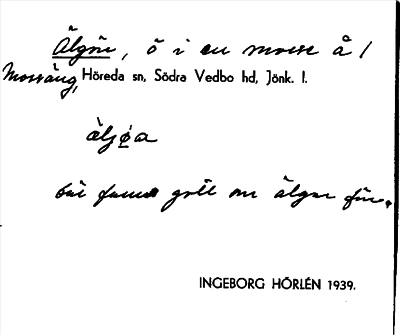 Älgön, ö i en mosse å /
Mossäng, Höreda sn, Södra Vedbo hd, Jönk. l.
äljøa
gott om älgar förr.
INGEBORG HÖRLÉN 1939.